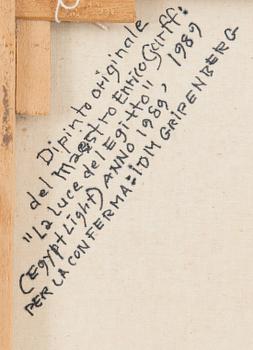 Dipinto originale
del Maestro Enrico Scirff:
"La Luce del Egitto" 1989
(EgyptLight) ANNO 1989,
PER LA CONFERMA: IDIM GRIPENBERG